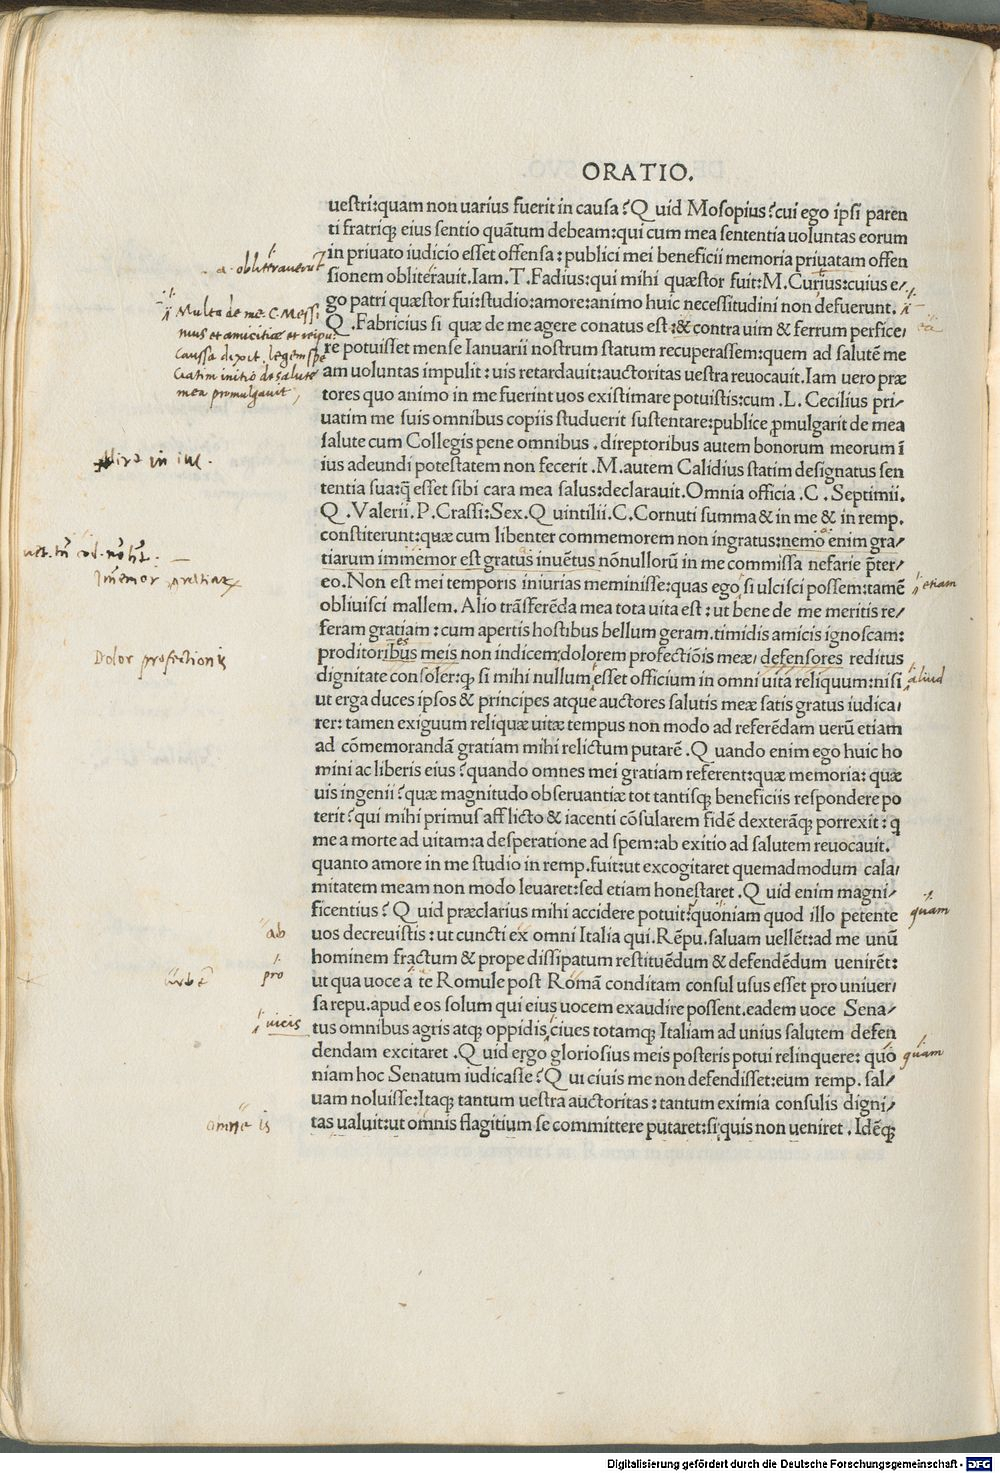 ORATIO.
uestri:quam non uarius fuerit in causa?Q uid Mosopius?cui ego ipsi paren
ti fratriq; eius sentio quãtum debeam:qui cum mea sententia uoluntas eorum
in priuato iudicio esset offensa:publici mei beneficii memoria priuatam offen
a. oblitterauerũt
sionem obliterauit.Iam.T.Fadius:qui mihi quæstor fuit:M.Curius:cuius e/
go patri quæstor fui:studio:amore:animo huic necessitudini non defuerunt.
Multa de me C. Messi
nius et amicitiæ et reipu.
caussa dixit. legem spe
ciatim initio de salute
mea promulgauit
Q .Fabricius si quæ de me agere conatus est:& contra uim & ferrum perfice/
eã
re potuisset mense Ianuarii nostrum statum recuperassem:quem ad salutẽ me
am uoluntas impulit:uis retardauit:auctoritas uestra reuocauit.Iam uero præ
tores quo animo in me fuerint uos existimare potuistis:cum .L.Cecilius pri/
uatim me suis omnibus copiis studuerit sustentare:publice ꝓmulgarit de mea
salute cum Collegis pene omnibus.direptoribus autem bonorum meorum ĩ
ius adeundi potestatem non fecerit.M.autem Calidius statim designatus sen
tentia sua:q̃ esset sibi cara mea salus:declarauit.Omnia officia .C.Septimii.
Q .Valerii.P.Crassi:Sex.Q uintilii.C.Cornuti summa & in me & in remp.
constiterunt:quæ cum libenter commemorem non ingratus:nemo enim gra/
tiarum immemor est gratus inuẽtus nõnullorũ in me commissa nefarie p̃ter/
eo.Non est mei temporis iniurias meminisse:quas ego si ulcisci possem:tamẽ
etiam
obliuisci mallem.Alio trãsferẽda mea tota uita est:ut bene de me meritis re/
feram gratiam:cum apertis hostibus bellum geram.timidis amicis ignoscam:
es
proditoribus meis non indicem:dolorem profectiõis meæ/defensores reditus
Dolor profectionis
dignitate consoler:q; si mihi nullum esset officium in omni uita reliquum:nisi
aliud
ut erga duces ipsos & principes atque auctores salutis meæ satis gratus iudica/
rer:tamen exiguum reliquæ uitæ tempus non modo ad referẽdam uerũ etiam
ad cõmemorandã gratiam mihi relictum putarẽ.Q uando enim ego huic ho
mini ac liberis eius?quando omnes mei gratiam referent:quæ memoria:quæ
uis ingenii?quæ magnitudo obseruantiæ tot tantisq; beneficiis respondere po
terit?qui mihi primus afflicto & iacenti cõsularem fidẽ dexterãq; porrexit:q
me a morte ad uitam:a desperatione ad spem:ab exitio ad salutem reuocauit.
quanto amore in me studio in remp.fuit:ut excogitaret quemadmodum cala/
mitatem meam non modo leuaret:sed etiam honestaret.Q uid enim magni/
ficentius?Q uid præclarius mihi accidere potuit:quoniam quod illo petente
quam
uos decreuistis:ut cuncti ex omni Italia qui.Rẽpu.saluam uellẽt:ad me unũ
ab
hominem fractum & prope dissipatum restituẽdum & defendẽdum uenirẽt:
pro
ut qua uoce a te Romule post Romã conditam consul usus esset pro uniuer/
urbẽ
sa repu.apud eos solum qui eius uocem exaudire possent.eadem uoce Sena/
tus omnibus agris atq; oppidis ciues totamq; Italiam ad unius salutem defen
uicis
dendam excitaret.Q uid ergo gloriosius meis posteris potui relinquere:quo
quam
niam hoc Senatum iudicaste?Q ui ciuis me non defendisset:eum remp.sal/
uam noluisse:Itaq; tantum uestra auctoritas:tantum eximia consulis digni/
tas ualuit:ut omnis flagitium se committere putaret:si quis non ueniret.Idẽq;
is
Digitalisierung gefördert durch die Deutsche Forschungsgemeinschaft - DFG